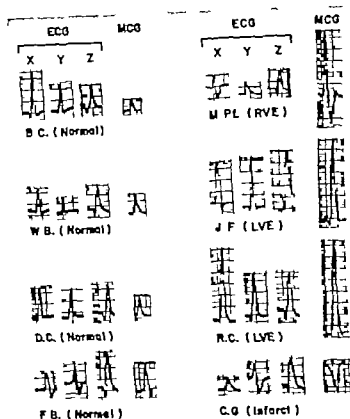 ECG MCG
X Y Z
B.C. (Normal)
W B. (Normal)
D.C. (Normal)
F B. (Normal)
ECG MCG
X Y Z
M PL (RVE)
J F (LVE)
R.C. (LVE)
C.G (Infarct)